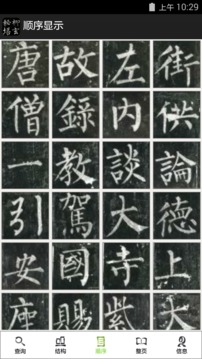 上午 10:29
柳玄秘塔
顺序显示
唐 故 左 街
僧 錄 內 供
一 教 談 論
引 駕 大 德
安 國 寺 上
座 賜 紫 大
查询 结构 顺序 整页 信息